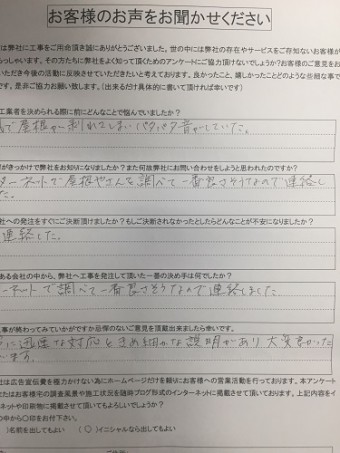 お客様のお声をお聞かせください
は弊社に工事をご用命頂き誠にありがとうございます。世の中には弊社の存在やサービスをご存知ないお客様が
らっしゃいます。その方たちに弊社をよく知って頂くためのアンケートにご協力頂けないでしょうか?お客様のご意見をお
いただき今後の活動に反映させていただきたいと考えております。良かったこと、嬉しかったことどのような些細な事で
す。是非ご協力お願い致します。(出来るだけ具体的に書いて頂ければ幸いです)
工業者を決められる際に前にどんなことで悩んでいましたか?
で屋根が剥れてしまいパタパタ音がしていた。
がきっかけで弊社をお知りになりましたか?また何故弊社にお問い合わせをしようと思われたのですか?
ターネットで屋根やさんを調べて一番良さそうなので連絡し
た。
社への発注をすぐにご決断頂けましたか?もしご決断されなかったとしたらどんなことが不安になりましたか?
連絡した。
ある会社の中から、弊社へ工事を発注して頂いた一番の決め手は何でしたか?
ーネットで調べて一番良さそうなので連絡しました。
工事が終わってみていかがですか忌憚のないご意見を頂戴出来ましたら幸いです。
に迅速な対応ときめ細かな説明があり大変良かった
います。
社は広告宣伝費を極力かけない為にホームページだけを頼りにお客様への営業活動を行っております。本アンケート
またはお客様宅の調査風景や施工状況を随時ブログ形式のインターネットに掲載させて頂いております。上記内容をイ
ネットや印刷物に掲載させて頂いてもよろしいでしょうか?
中から〇印をお付下さい。
)名前を出してもよい (〇)イニシャルなら出してもよい